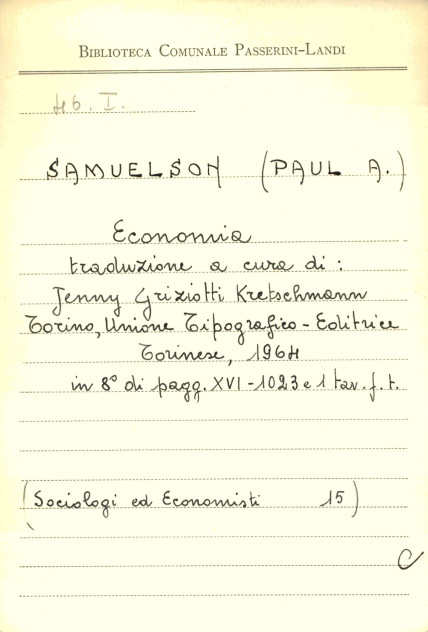 BIBLIOTECA COMUNALE PASSERINI-LANDI
SAMUELSON (PAUL A.)
Economia
traduzione a cura di:
Jenny Griziotti Kretschmann
Torino, Unione Tipografico-Editrice
Torinese, 1964
in 8° di pagg. XVI-1023 e 1 tav. f. t.
(Sociologi ed Economisti 15)
C